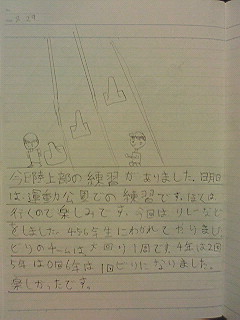 3.29
今日陸上部の練習がありました。日曜日
は、運動公園での練習です。ぼくは
行くので楽しみです。今回はリレーなど
をしました。4、5、6年生にわかれてやりました。
ビリのチームは 回り1周です。4年は2回
5年は0回6年は1回ビリになりました。
楽しかったです。